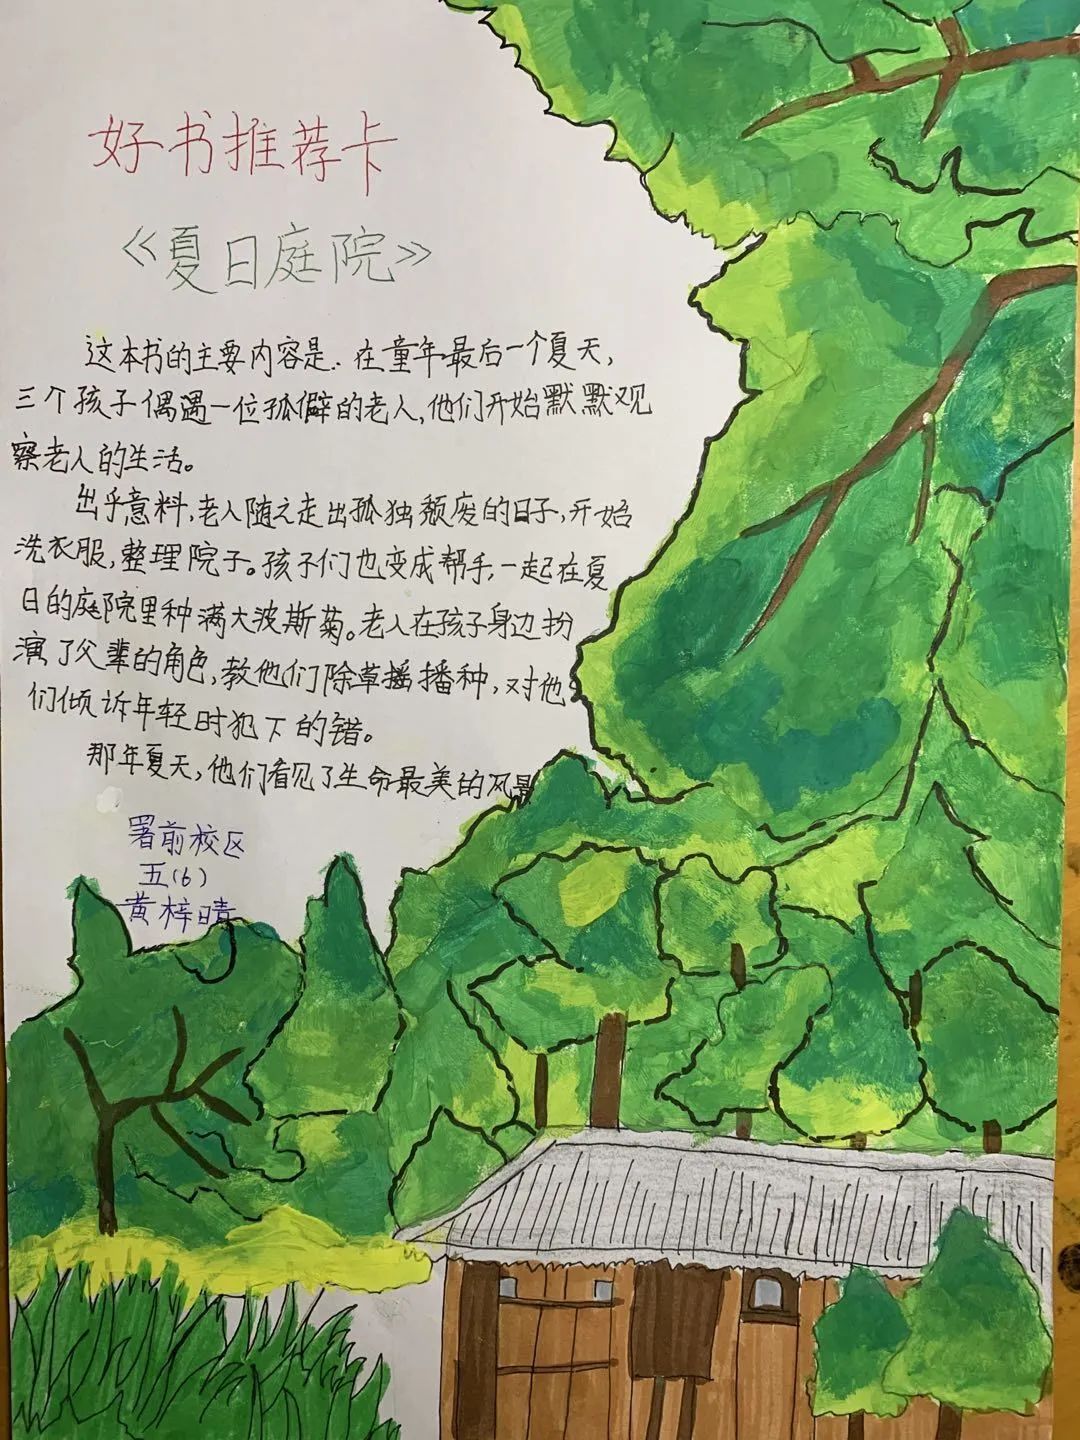 好书推荐卡
《夏日庭院》
这本书的主要内容是：在童年最后一个夏天，
三个孩子偶遇一位孤僻的老人，他们开始默默观
察老人的生活。
出乎意料，老人随之走出孤独颓废的日子，开始
洗衣服，整理院子。孩子们也变成帮手，一起在夏
日的庭院里种满大波斯菊。老人在孩子身边扮
演了父辈的角色，教他们除草摇播种，对他
们倾诉年轻时犯下的错。
那年夏天，他们看见了生命最美的风景
署前校区
五(6)
黄梓晴